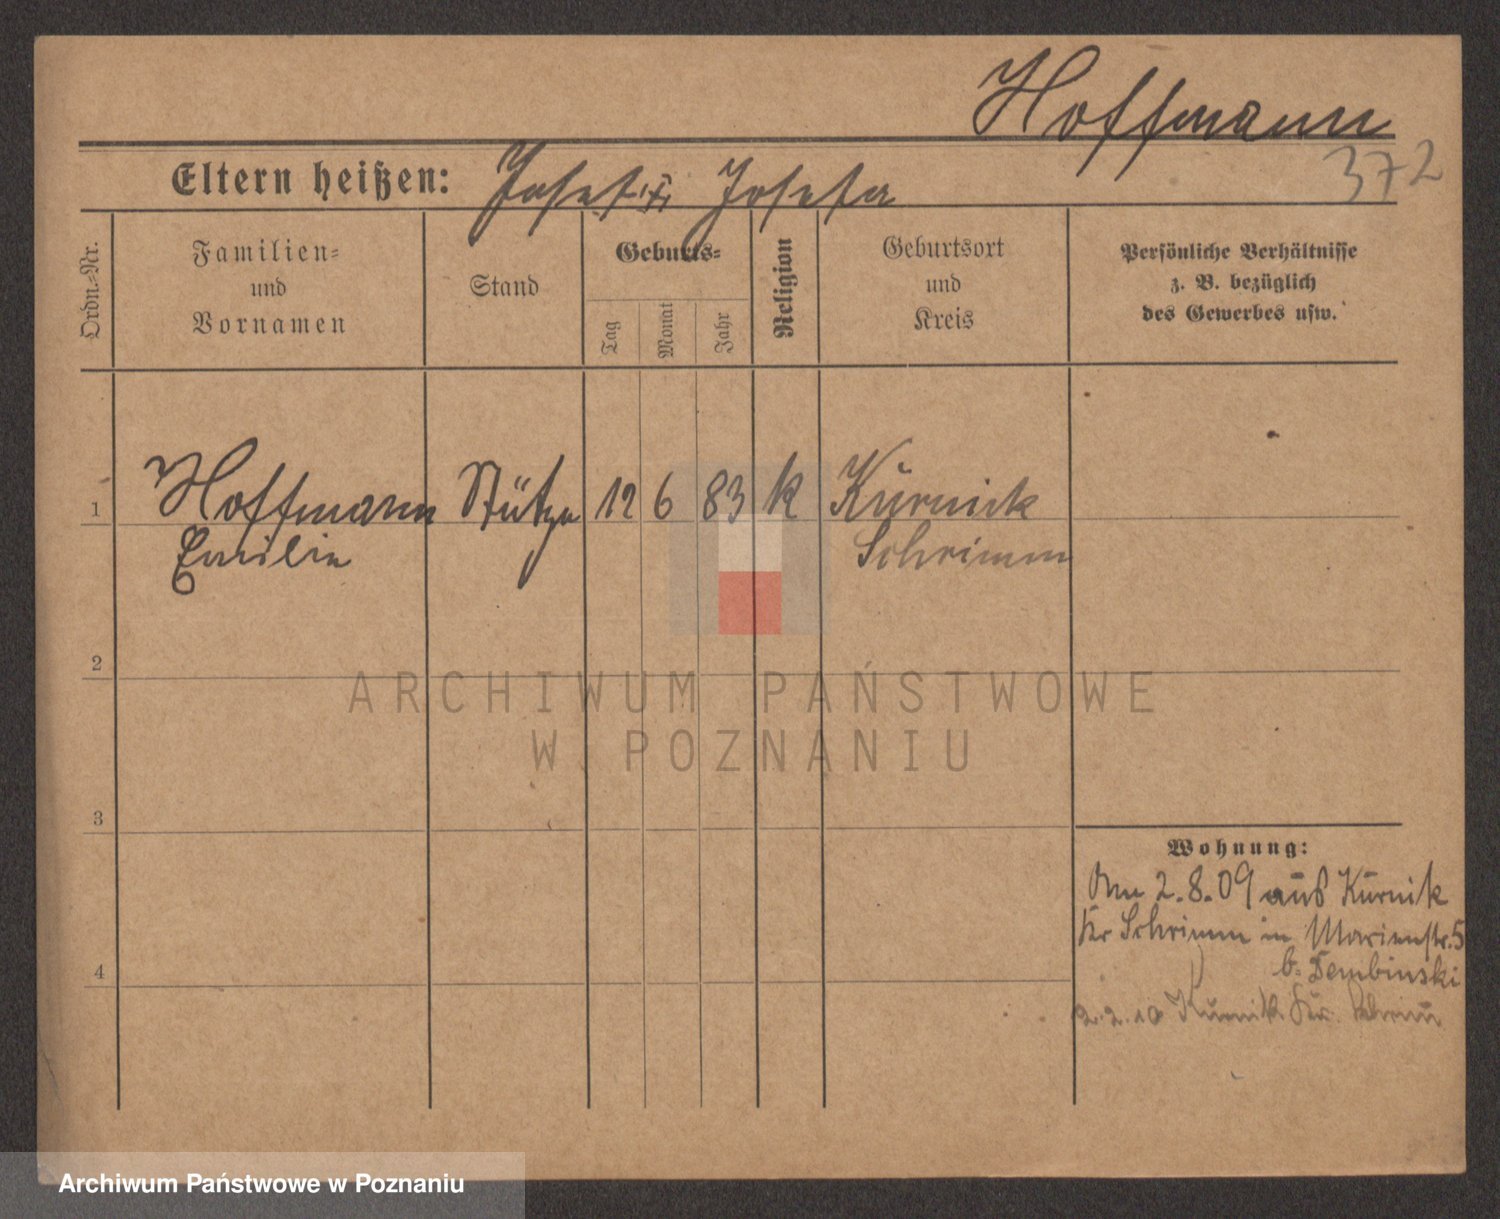 Hoffmann
372
Eltern heißen: Josef u. Josefa
Ordn.-Nr.
Familien-
und
Vornamen
Stand
Geburts-
Tag
Monat
Jahr
Religion
Geburtsort
und
Kreis
Persönliche Verhältnisse
z. B. bezüglich
des Gewerbes usw.
1 Hoffmann Stütze 12 6 83 k Kurnick
Emilie Schrimm
2
3
4
ARCHIWUM PAŃSTWOWE
W POZNANIU
Wohnung:
Am 2.8.09 aus Kurnik
Kr Schrimm in Marienstr. 5
b. Dembinski
2.2.10 Kurnik Kr. Schrimm
Archiwum Państwowe w Poznaniu